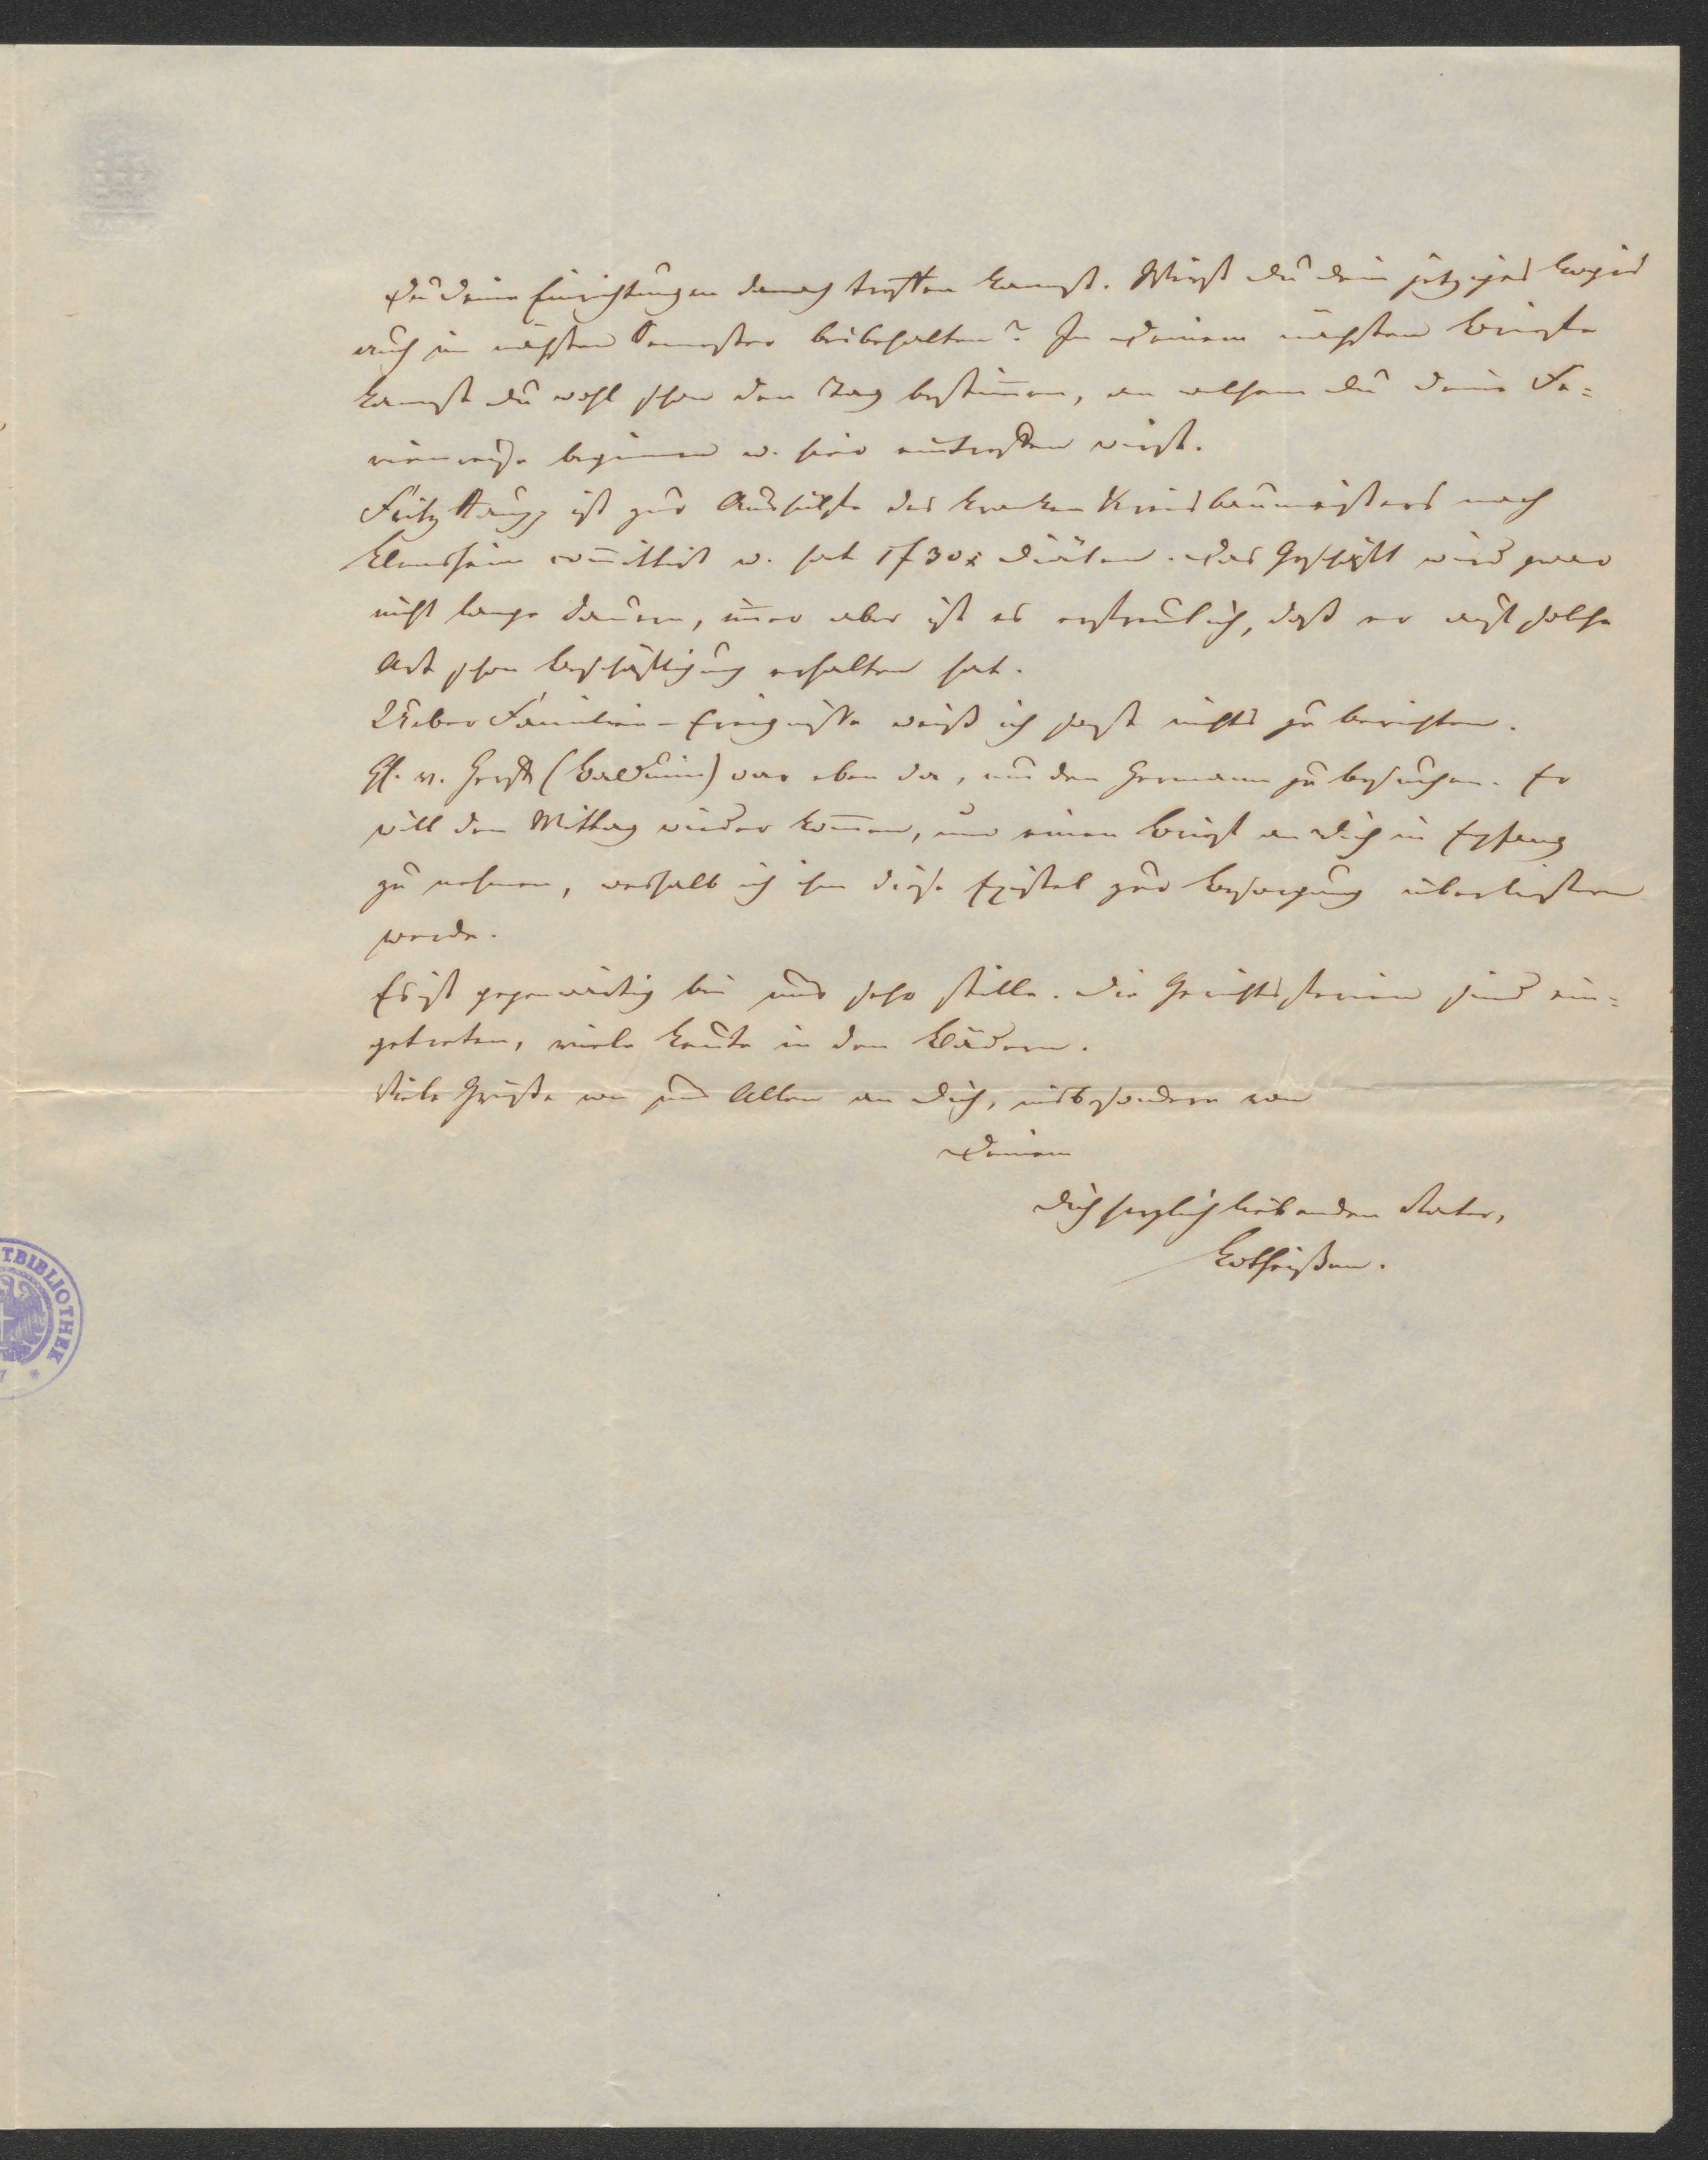 Du Deine Einrichtungen danach treffen kannst. Wirst Du Dein jetziges Logis
auch im nächsten Semester beibehalten? In Deinem nächsten Briefe
kannst Du wohl schon den Tag bestim̄en, an welchem Du Deine Fe=
rienreise beginnen u. hier eintreffen wirst.
Fritz Haupt ist zur Aushülfe des kranken Kreisbaumeisters nach
com̄ittirt u. hat 1f 30x Diäten. Das Geschäft wird zwar
nicht lange dauern, im̄er aber ist es erfreulich, daß er auf solche
Art schon Beschäftigung erhalten hat.
Ueber Familien-Ereignisse weiß ich sonst nichts zu berichten.
v. (Balduin) war eben da, um den Hermann zu besuchen. Er
will den Mittag wieder kom̄en, um einen Brief an Dich in Empfang
zu nehmen, weshalb ich ihm diese Epistel zur Besorgung überliefern
werde.
Es ist gegenwärtig bei uns sehr stille. Die Gerichtsferien sind ein=
getreten, viele Leute in den Bädern.
Viele Grüße von uns Allen an Dich, insbesondere von
Deinem
Dich herzlich liebenden Vater,
Lotheißen.
TBIBLIOTHEK